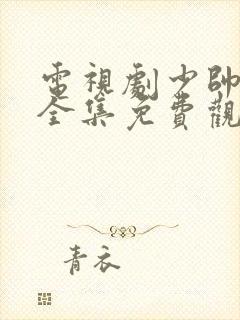 電視劇少帥
全集免費觀
青衣